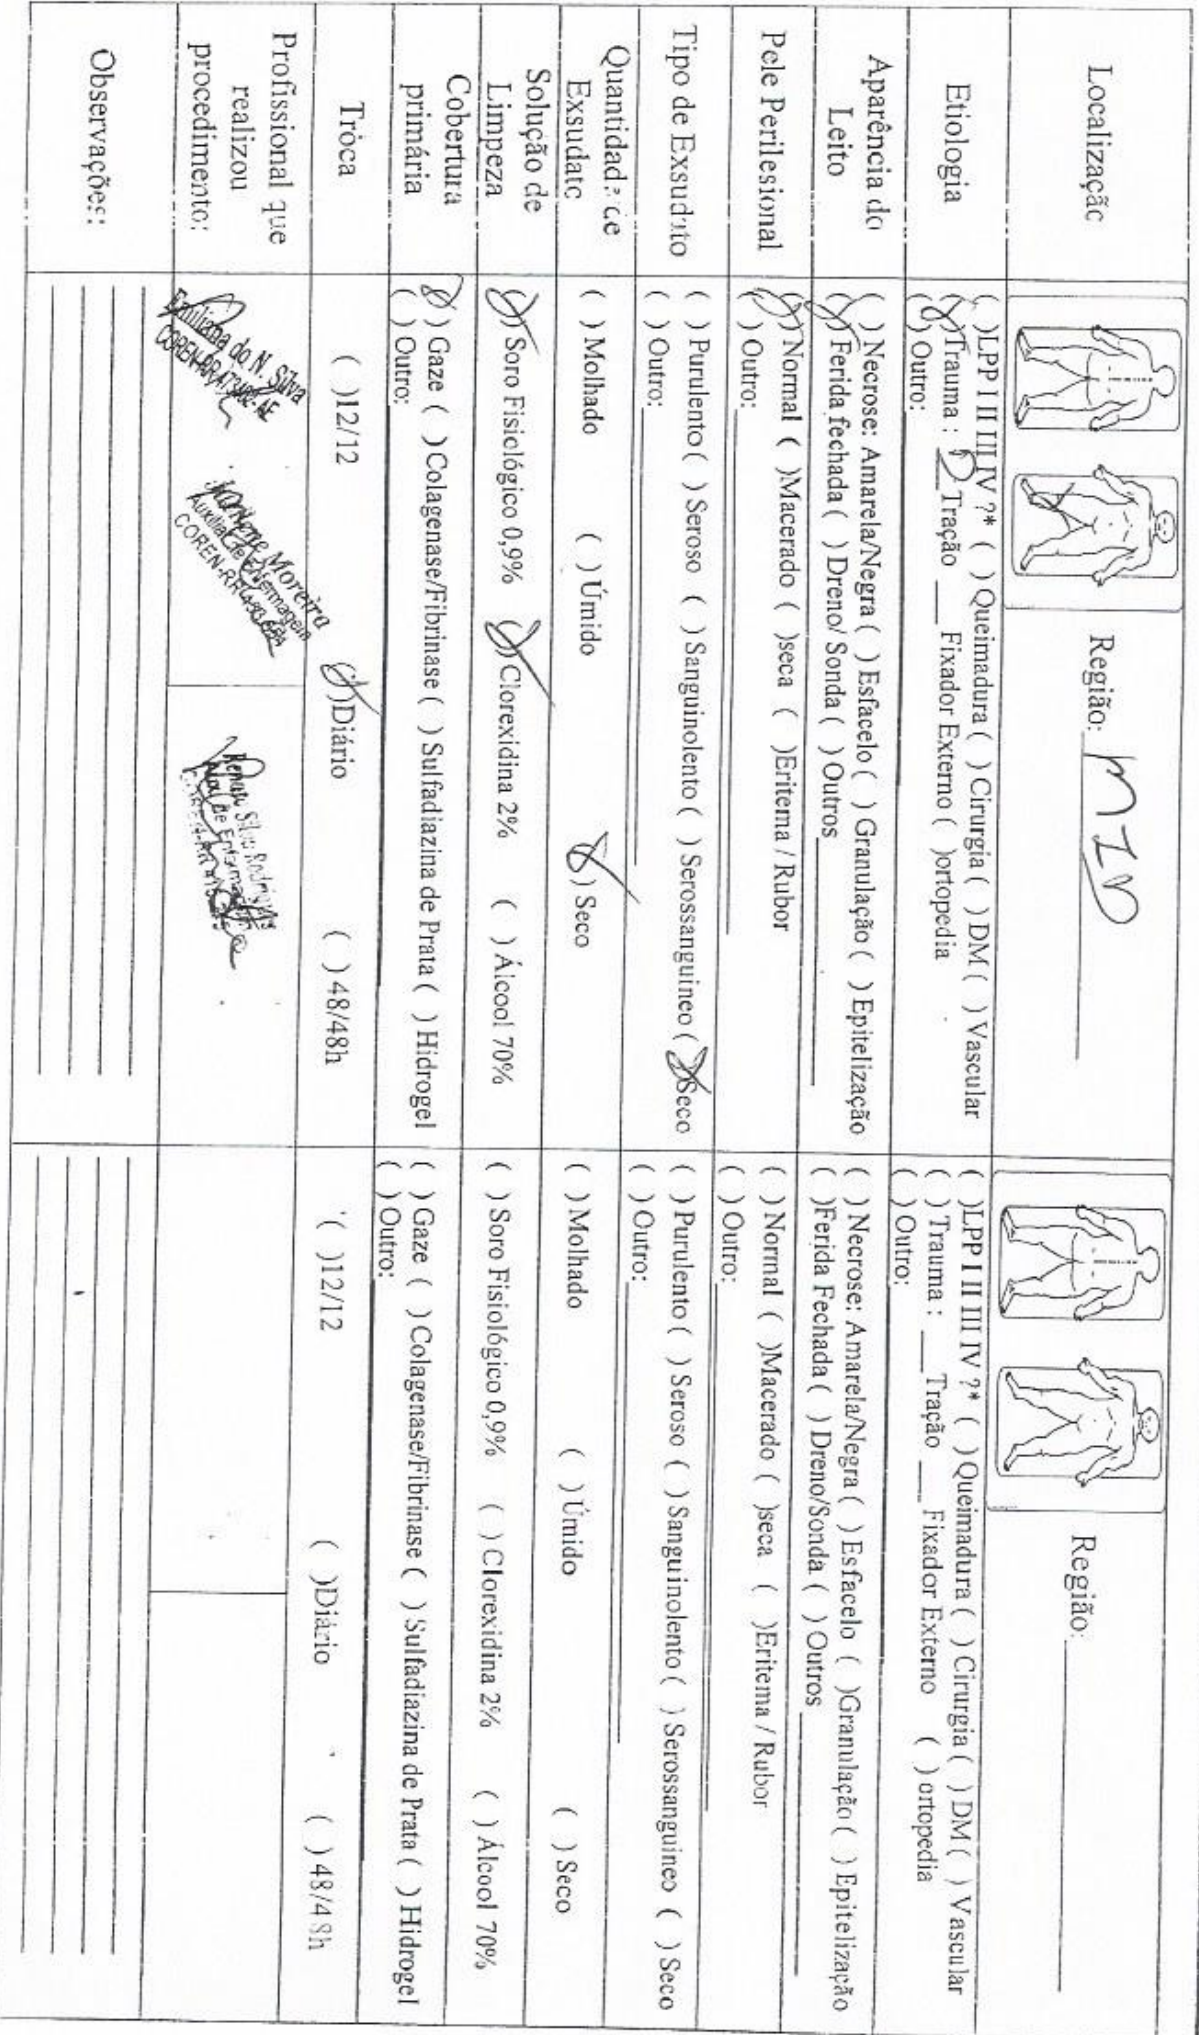 Localizaçãc
Região: MID
Região:
Etiologia
( )LPP I II III IV ?* ( ) Queimadura ( ) Cirurgia ( ) DM ( ) Vascular
(X)Trauma : ___ Tração ___ Fixador Externo ( )ortopedia
( ) Outro:
( )LPP I II III IV ?* ( ) Queimadura ( ) Cirurgia ( ) DM ( ) Vascular
( ) Trauma : ___ Tração ___ Fixador Externo ( ) ortopedia
( ) Outro:
Aparência do
Leito
( ) Necrose: Amarela/Negra ( ) Esfacelo ( ) Granulação ( ) Epitelização
(X) Ferida fechada ( ) Dreno/ Sonda ( ) Outros
( ) Necrose: Amarela/Negra ( ) Esfacelo ( )Granulação ( ) Epitelização
( )Ferida Fechada ( ) Dreno/Sonda ( ) Outros
Pele Perilesional
(X)Normal ( )Macerado ( )seca ( )Eritema / Rubor
( ) Outro:
( ) Normal ( )Macerado ( )seca ( )Eritema / Rubor
( ) Outro:
Tipo de Exsudato
( ) Purulento ( ) Seroso ( ) Sanguinolento ( ) Serossanguineo (X)Seco
( ) Outro:
( ) Purulento ( ) Seroso ( ) Sanguinolento ( ) Serossanguineo ( ) Seco
( ) Outro:
Quantidade ce
Exsudatc
( ) Molhado ( ) Úmido (X) Seco
( ) Molhado ( ) Úmido ( ) Seco
Solução de
Limpeza
(X) Soro Fisiológico 0,9% (X)Clorexidina 2% ( ) Álcool 70%
( ) Soro Fisiológico 0,9% ( ) Clorexidina 2% ( ) Álcool 70%
Cobertura
primária
(X) Gaze ( )Colagenase/Fibrinase ( ) Sulfadiazina de Prata ( ) Hidrogel
( ) Outro:
( ) Gaze ( ) Colagenase/Fibrinase ( ) Sulfadiazina de Prata ( ) Hidrogel
( ) Outro:
Troca
( )12/12 (X)Diário ( )48/48h
( )12/12 ( )Diário ( ) 48/48h
Profissional que
realizou
procedimento:
do N. Silva
COREN-RR
Moreira
Auxiliar de Enfermagem
COREN-RR
Renan Silva Rodrigues
de Enfermagem
Observações: